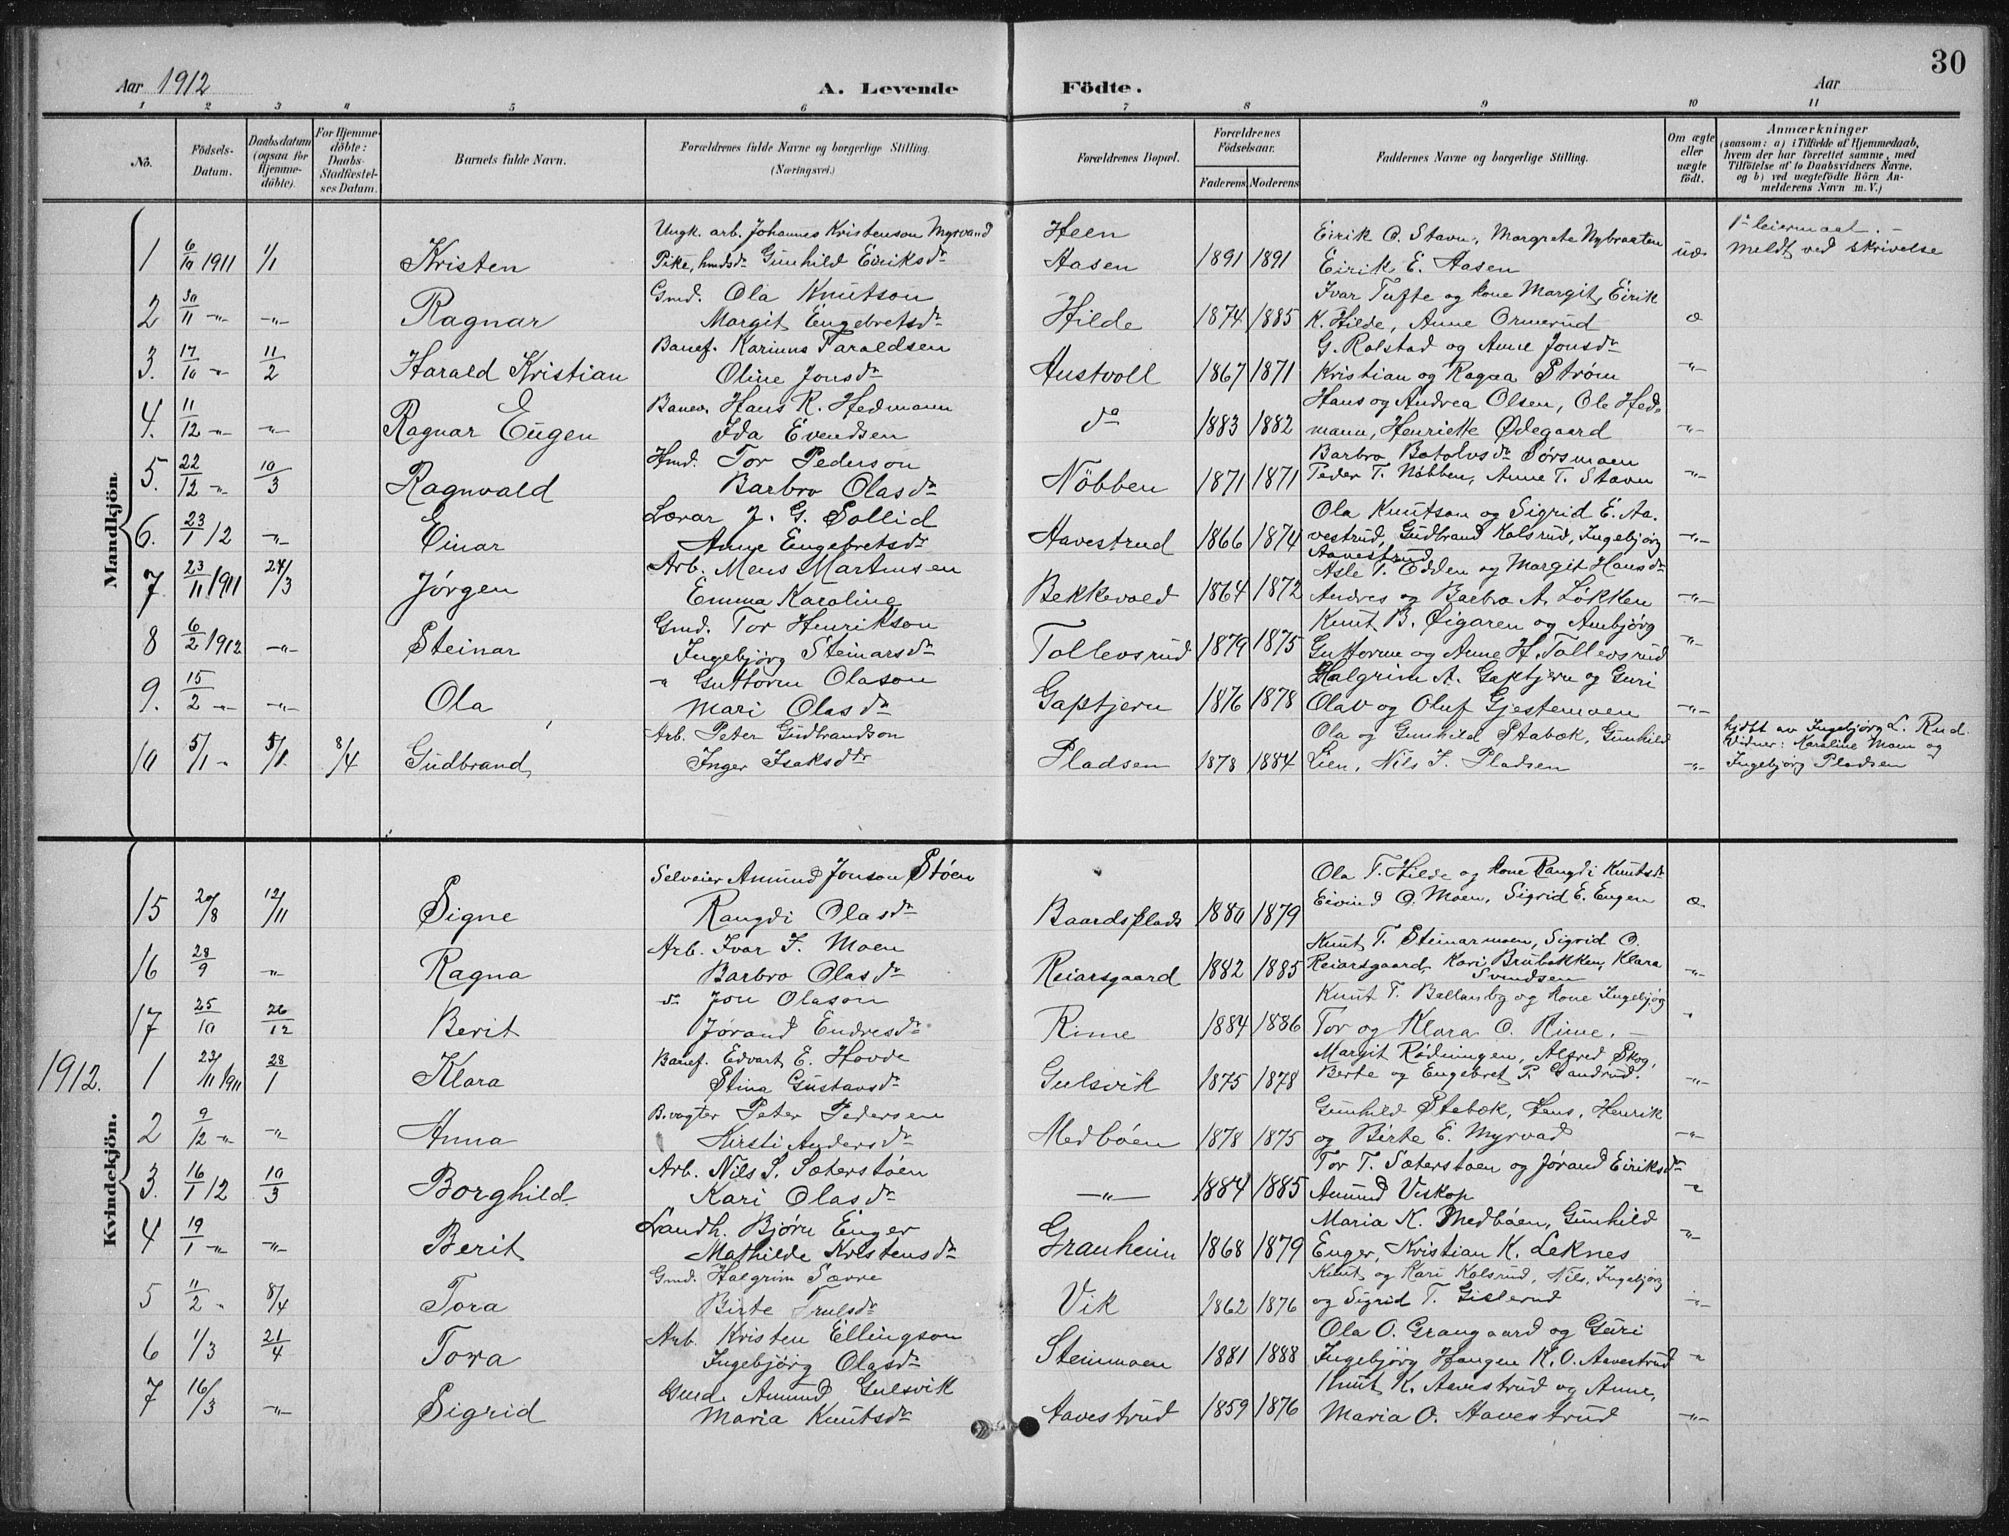 30
Aar 1912
A. Levende
Födte.
Aar
1 2 3 4 5 6 7 8 9 10 11
No.
Födsels-Datum.
Daabsdatum (ogsaa for Hjemme-döbte).
For Hjemme-döbte: Daabs-Stadfæstel-ses Datum.
Barnets fulde Navn.
Forældrenes fulde Navne og borgerlige Stilling. (Næringsvei.)
Forældrenes Bopæl.
Forældrenes Födselsaar.
Faderens Moderens
Faddernes Navne og borgerlige Stilling.
Om ægte eller uægte födt.
Anmærkninger
(saasom: a) i Tilfælde af Hjemmedaab, hvem der har forrettet samme, med Tilföielse af to Daabsvidners Navne, og b) ved uægtefödte Börn Anmelderens Navn m. V.)
Mandkjön.
Ungk. arb. Johannes Kristenson Myrvand Heen Eirik O. Stavn, Margrete Nybraaten 1ste leiermaal. -
1 6/10 1911 1/1 Kristen Pike, hmdsdr Gunhild Eiriksdr Aasen 1891 1891 Eirik E. Aasen uæ. meldt ved skrivelse
Gmd. Ola Knutson Ivar Tufte og kone Margit, Eirik
2 30/11 -"- -"- Ragnar Margit Engebretsdr Hilde 1874 1885 K. Hilde, Anne Ormerud æ
Banef. Karinus Taraldsen G. Rolstad og Anne Jonsdr
3. 17/10 -"- 11/2 Harald Kristian Oline Jonsdr Austvoll 1867 1871 Kristian og Ragna Strøm -"-
Banev. Hans R. Hedmann Hans og Andrea Olsen, Ole Hed-
4. 11/12 -"- -"- Ragnar Eugen Ida Evendsen do 1883 1882 mann, Henriette Ødegaard -"-
Hmd. Tor Pederson Barbro Botolvsdr Sørsmoen
5. 22/12 -"- 10/3 Ragnvald Barbro Olasdr Nöbben 1871 1871 Peder T. Nöbben, Anne T. Stavn -"-
Lærar J. G. Sollid Ola Knutson og Sigrid E. Aa-
6. 23/1 12 -"- Einar Anne Engebretsdr Aavestrud 1866 1874 vestrud, Gudbrand Kolsrud, Ingebjørg Aavestrud -"-
Arb. Mens Martinsen Asle T. Edden og Margit Hansdr
7. 23/11 1911 24/3 Jørgen Emma Karoline Bekkevold 1864 1872 Andres og Barbro A. Løkken -"-
Gmd. Tor Henrikson Knut B. Øigaren og Anbjørg
8 6/2 1912 -"- Steinar Ingebjørg Steinarsdr Tollevsrud 1879 1875 Guttorm og Anne H. Tollevsrud -"-
-"- Guttorm Olason Halgrim A. Gaptjern og Guri
9. 15/2 -"- -"- Ola Mari Olasdr Gaptjern 1876 1878 Olav og Oluf Gjestemoen -"-
Arb. Peter Gudbrandson Ola og Gunhild Stabæk, Gunhild hjdbt av Ingebjørg L. Rud.
10 5/1 - 5/1 8/4 Gudbrand Inger Isaksdtr Pladsen 1878 1884 Lien, Nils I. Pladsen -"- Vidner: Karoline Moen og Ingebjørg Pladsen
Kvindekjön.
Selveier Amund Jonson Støen Ola T. Hilde og kone Rangdi Knutsdr
15 20/8 12/11 Signe Rangdi Olasdr Baardsplads 1880 1879 Eivind O. Moen, Sigrid E. Engen æ.
Arb. Ivar I. Moen Knut T. Steinarmoen, Sigrid O.
16 28/9 -"- Ragna Barbro Olasdr Reiarsgaard 1882 1885 Reiarsgaard, Kari Brubakken, Klara Svendsen -"-
do Jon Olason Knut T. Ballanbg og kone Ingebjørg
17 25/10 26/12 Berit Jørand Endresdr Rime 1884 1886 Tor og Klara O. Rime. - "
Banef. Edvart E. Hovde Margit Rødningen, Alfred Skog,
1912. 1 23/11 1911 28/1 Klara Stina Gustavsdr Gulsvik 1875 1878 Berte og Engebret P. Sandrud. -"-
B.vogter Peter Pedersen Gunhild Stabæk, Hans, Henrik
2 9/12 -"- -"- Anna Kirsti Andersdr Medbøen 1878 1875 og Birte E. Myrvad -"-
Arb. Nils S. Sæterstøen Tor T. Sæterstøen og Jørand Eiriksdr
3. 16/1 12 10/3 Borghild Kari Olasdr -"- 1884 1885 Amund Veskop -"-
Landh. Bjørn Enger Maria K. Medbøen, Gunhild
4 19/1 -"- -"- Berit Mathilde Kristensdr Granheim 1868 1879 Enger, Kristian K. Leknes -"-
Gmd. Halgrim Sævre Knut og Kari Kolsrud, Nils, Ingebjørg
5 11/2 " 8/4 Tora Birte Trulsdr Vik 1862 1876 og Sigrid T. Gislerud -"-
Arb. Kristen Ellingson Ola O. Grangaard og Guri
6 1/3 21/4 Tora Ingebjørg Olasdr Steinmoen 1881 1888 Ingebjørg Haugen K. O. Aavestrud -"-
Gmd. Amund Gulsvik Knut K. Aavestrud og Anne,
7 16/3 -"- Sigrid Maria Knutsdr Aavestrud 1859 1876 Maria O. Aavestrud -"-